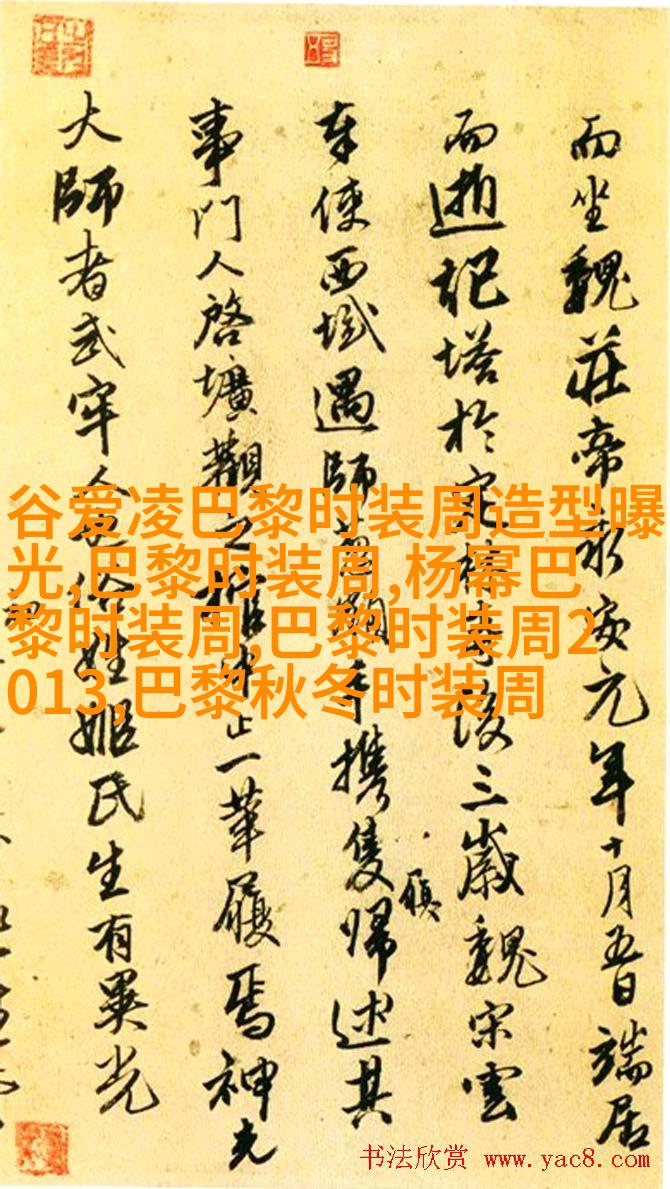 而坐魏莊帝永安元年十月五日端居
而逝祀塔於定林寺後三歲魏宋雲
奉使西域遇師葱嶺手攜隻歸述其
履
事門人啓壙觀之惟止一革履焉神光
大師者武牢人也俗姓姬氏生有異光
谷爱凌巴黎时装周造型曝
光,巴黎时装周,杨幂巴
黎时装周,巴黎时装周2
013,巴黎秋冬时装周
书法欣赏 www.yac8.com